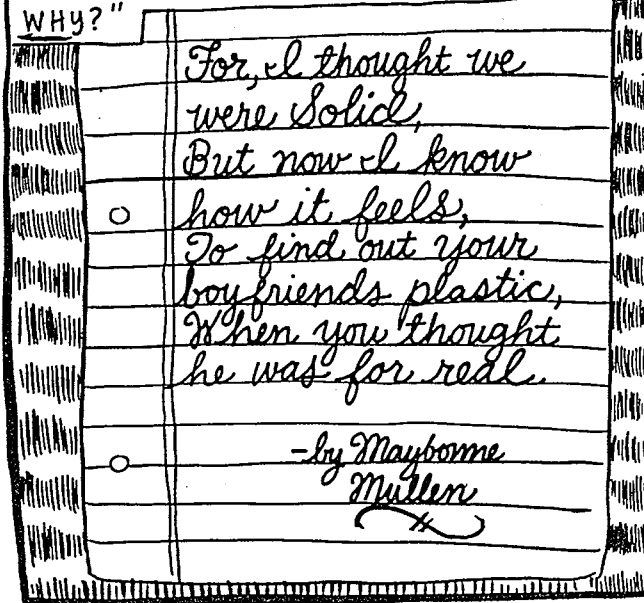 WHY?"
For, I thought we
were Solid,
But now I know
how it feels,
To find out your
boyfriends plastic,
When you thought
he was for real.
-by Maybonne
Mullen